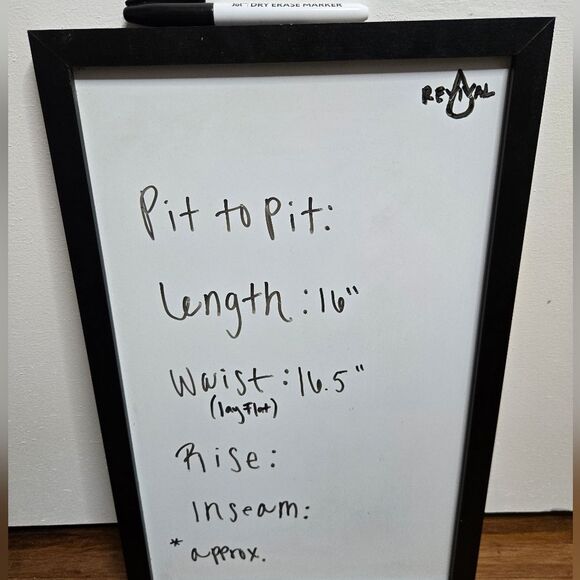 DRY ERASE MARKER
REVIVAL
Pit to pit:
Length: 16"
Waist: 16.5"
(lay flat)
Rise:
Inseam:
* approx.